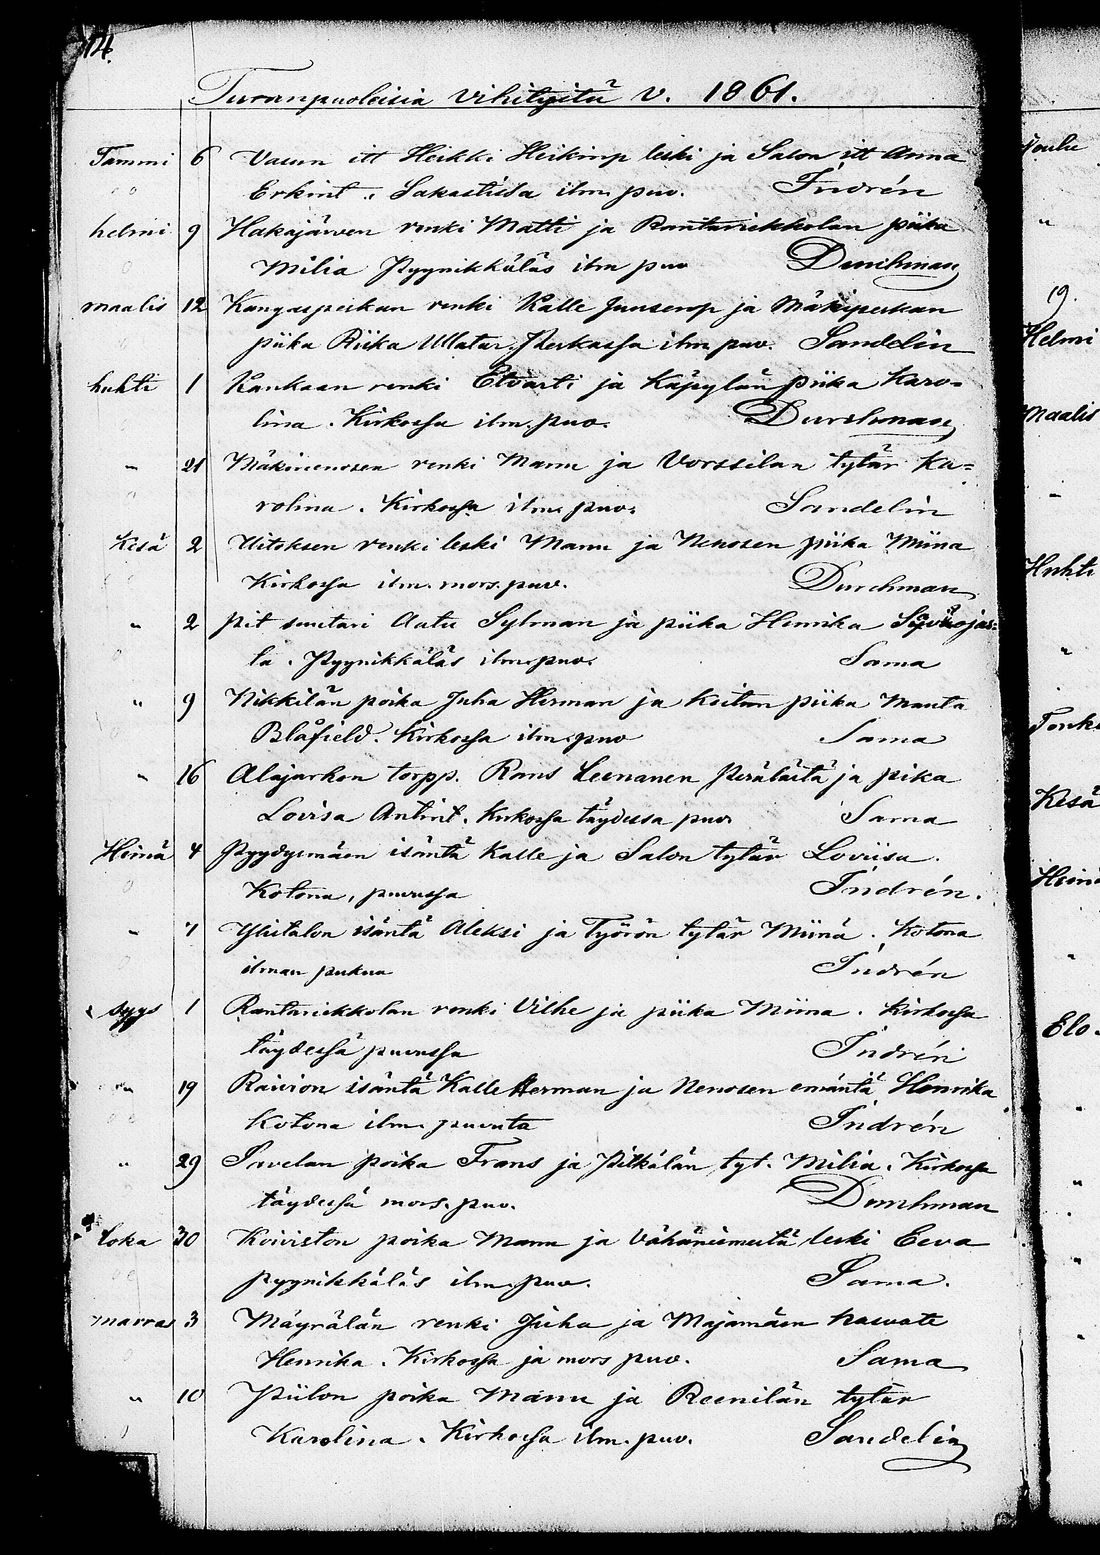 314.
Turanpuoleisia vihityitä v. 1861.
Tammi 6 Vasun itt Heikki Heikinp leski ja Salon itt Anna
Erkint. Sakastissa ilm. puv. Indrén
helmi 9 Hakajärven renki Matti ja Rantariekkolan piika
Milia Pyynikkäläs ilm puv Durchman
maalis 12 Kangasperkan renki Kalle Juusenp ja Mäkiperkan
piika Riika Perkassa ilm puv. Sandelin
huhti 1 Kankaan renki Etvarti ja Käpylän piika Karo=
lina. Kirkossa ilm. puv. Durchman
" 21 Mäkinenosen renki Manu ja Vorssilan tytär Ka=
rolina. Kirkossa ilm. puv. Sandelin
Kesä 2 Uitoksen renki leski Manu ja Nenosen piika Miina
Kirkossa ilm. mors. puv. Durchman
" 2 Pit suutari Aatu Sylman ja piika Henrika
la. Pyynikkäläs ilm. puv. Sama
" 9 Nikkilän poika Juha Herman ja piika Manta
Blåfield. Kirkossa ilm. puv Sama
" 16 Alajarkon torpp. Rans Leenanen Perälästä ja pika
Lovisa Antint. Kirkossa täydessä puv Sama
Heinä 4 Pyydysmäen isäntä Kalle ja Salon tytär Loviisa.
Kotona, puvussa Indrén.
" 7 Ylitalon isäntä Aleksi ja Työrön tytär Miina. Kotona
ilman pukua Indrén
syys 1 Rantariekkolan renki Vilhe ja piika Miina. Kirkossa
täydessä puvussa Indrén
" 19 Raivion isäntä Kalle Herman ja Nenosen emäntä Henrika
Kotona ilm. puvuta Indrén
" 29 Savelan poika Frans ja Pitkälän tyt. Milia. Kirkossa
täydessä mors. puv. Durchman
loka 30 Koiviston poika Manu ja Vähäniemestä leski Eeva
pyynikkäläs ilm. puv. Sama.
marras 3 Mäyrälän renki Juha ja Majamäen
Henrika. Kirkossa ja mors puv. Sama
" 10 Piilon poika Manu ja Reenilän tytär
Karolina. Kirkossa ilm. puv. Sandelin
19.
Helmi
Maalis
"
Huhti
"
Kesä
"
Elo.